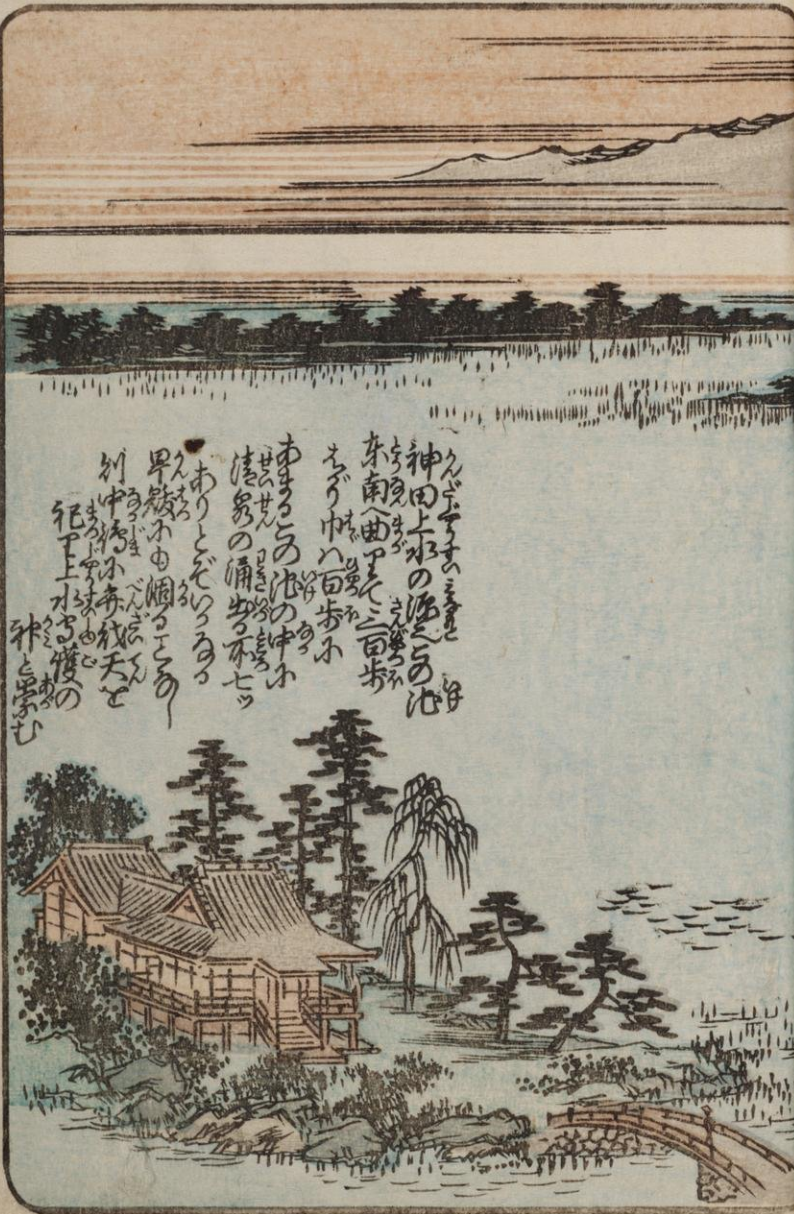 神田上水の源也この池
東南へ曲りて三百歩
ばかり巾ハ百歩に
あまるこの池の中に
清泉の涌出る所七ッ
ありとぞいかなる
旱魃にも涸ることなし
則中嶋に弁財天を
祀り上水守護の
神と崇む